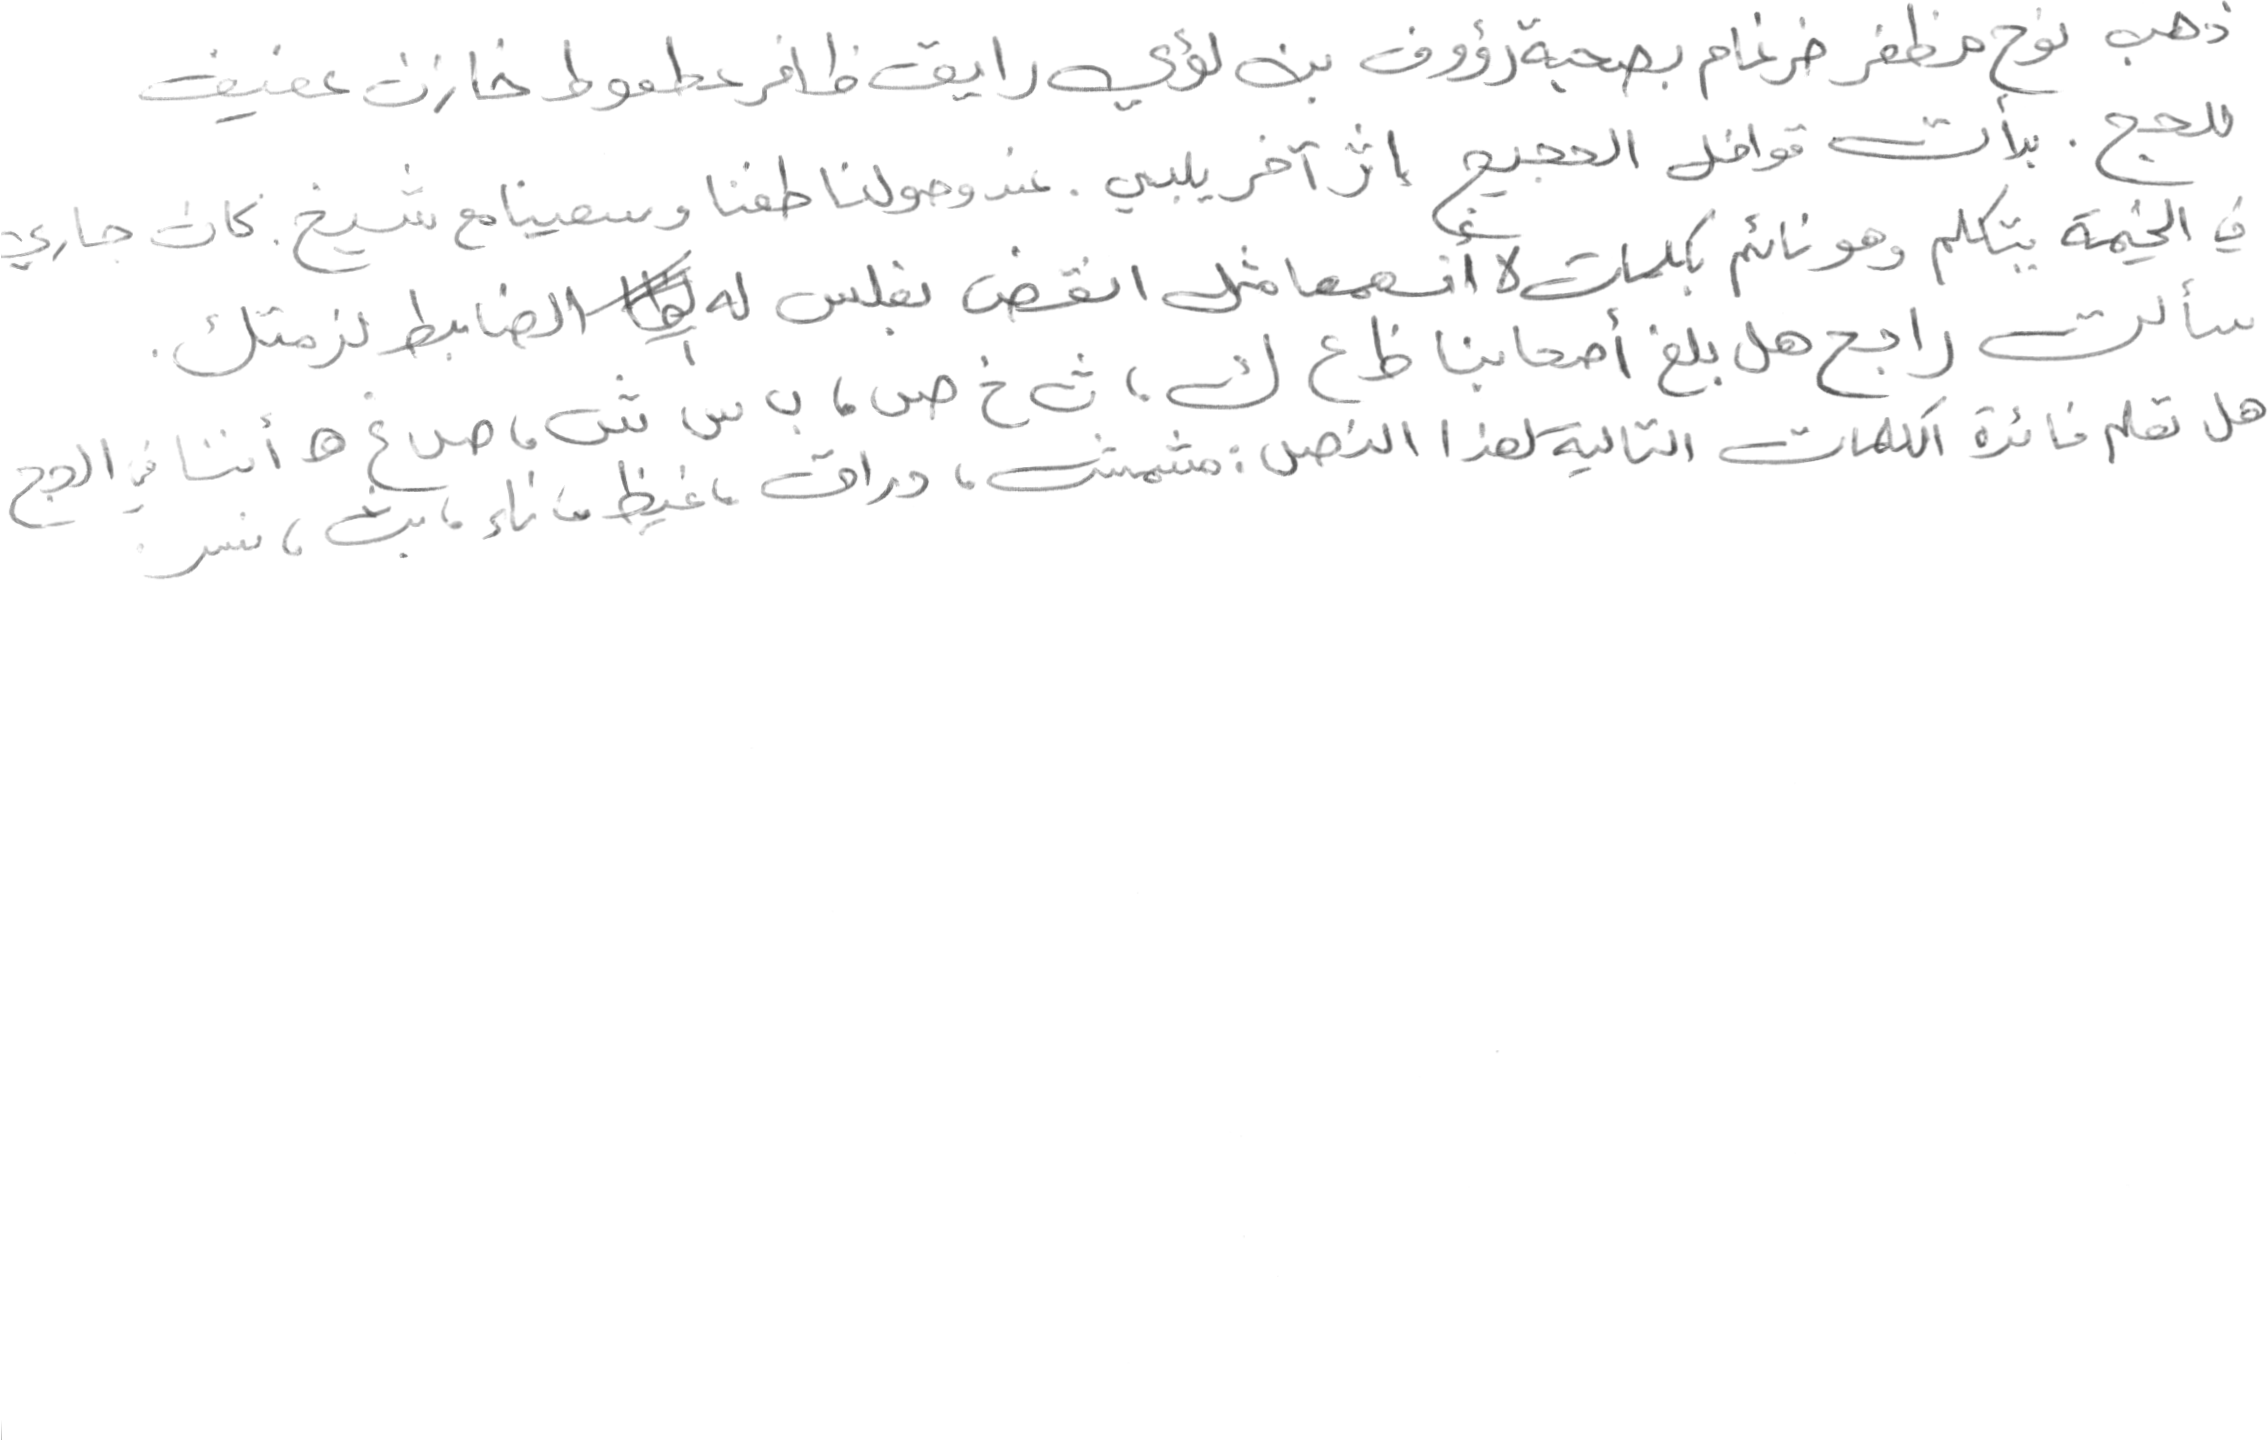 ذهب نوح مظفر ضرغام بصحبة رؤوف بن لؤي رايق ظافر عطعوط خازن عفيف
للحج . بدأت قوافل الحجيج إثر آخر يلبي . عند وصولنا طفنا وسعينا مع شيخ . كان جاري
في الخيمة يتكلم وهو نائم بكلمات لا أفهمها مثل انقض بغلس له الضابط لزمتك .
سألت راجح هل بلغ أصحابنا ظ ع ك ، ث خ ص ، ب س ش ، ص غ ه أننا في الحج
هل تعلم فائدة الكلمات التالية لهذا النص : مشمش ، دراق ، غيظ ، ناء ، بث ، نسر .